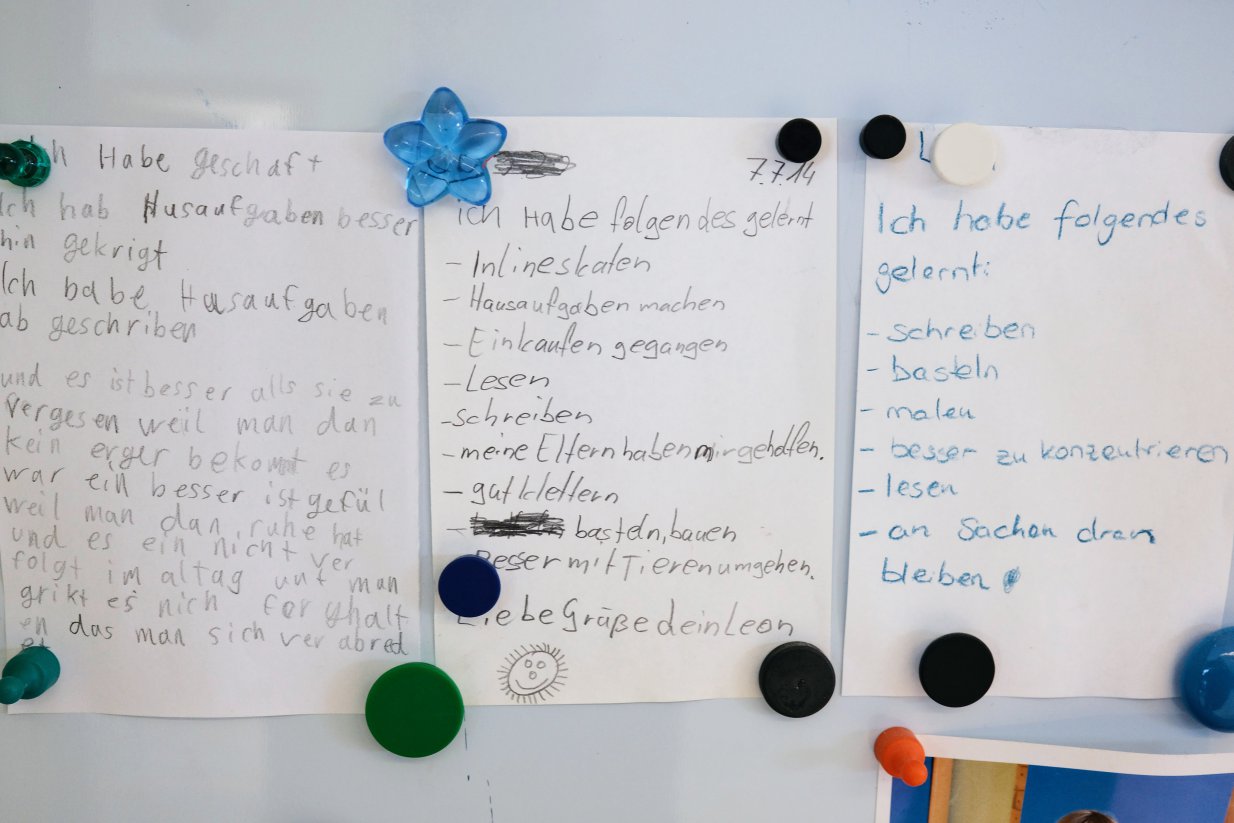 Habe geschaft
Ich hab Husaufgaben besser
hin gekrigt
Ich babe Husaufgaben
ab geschriben
und es ist besser alls sie zu
vergesen weil man dan
kein erger bekomt es
war ein besser ist gefül
weil man dan ruhe hat
und es ein nicht ver
folgt im altag unt man
grikt es nich for ghalt
en das man sich ver abred
et
7.7.14
ich Habe folgendes gelernt
- Inlineskaten
- Hausaufgaben machen
- Einkaufen gegangen
- Lesen
- schreiben
- meine Eltern haben mir geholfen.
- gut klettern
- basteln, bauen
Besser mit Tieren umgehen.
Liebe Grüße dein Leon
L
Ich habe folgendes
gelernt:
- schreiben
- basteln
- malen
- besser zu konzentrieren
- lesen
- an Sachen dran
bleiben